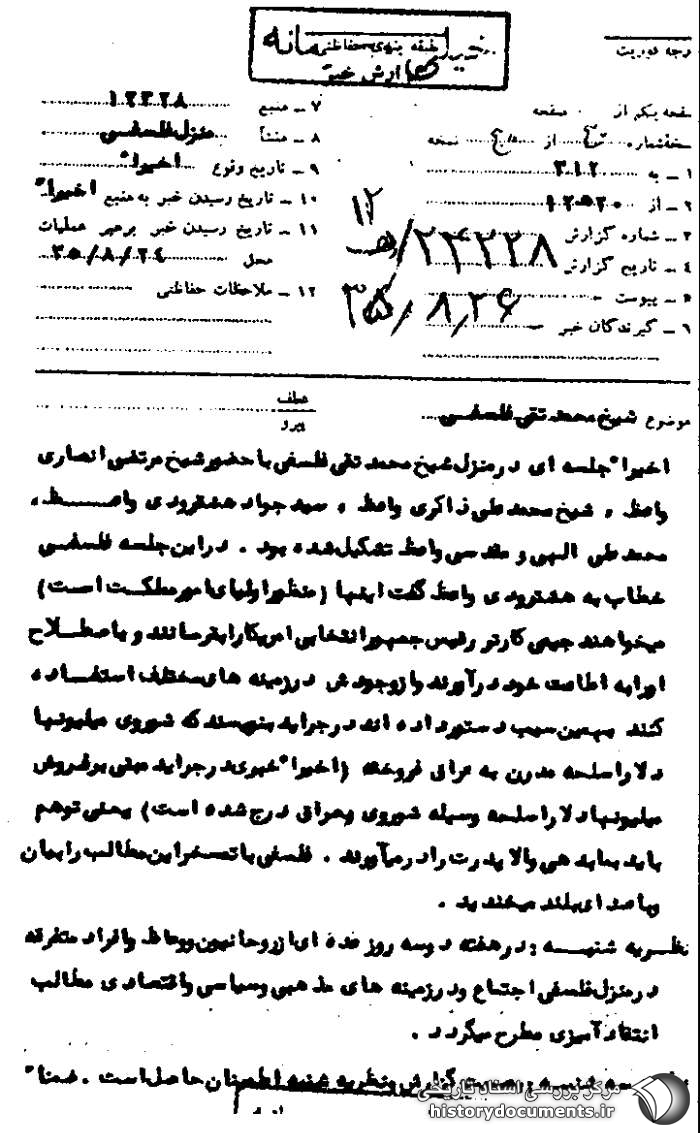 طبقه بندی حفاظتی
خیلی محرمانه
گزارش خبر
درجه فوریت
صفحه یکم از صفحه
نسخه شماره از نسخه
۱ – به ۳۱۲
۲ – از ۱۲ه۲۰
۳ – شماره گزارش ۲۴۲۲۸/ه ۱۲
۴ – تاریخ گزارش ۳۵/۸/۲۶
۵ – پیوست –
۶ – گیرندگان خبر –
۷ – منبع ۱۲۳۲۸
۸ – منشأ منزل فلسفی
۹ – تاریخ وقوع اخیرا"
۱۰ – تاریخ رسیدن خبر به منبع اخیرا"
۱۱ – تاریخ رسیدن خبر برهبر عملیات
محل ۳۵/۸/۲۴
۱۲ – ملاحظات حفاظتی
موضوع شیخ محمد تقی فلسفی
عطف
پیرو
اخیرا" جلسه ای در منزل شیخ محمد تقی فلسفی با حضور شیخ مرتضی انصاری
واعظ ، شیخ محمد علی ذاکری واعظ ، سید جواد هشترودی واعظ ،
محمد علی الهی و مقدسی واعظ تشکیل شده بود . در این جلسه فلسفی
خطاب به هشترودی واعظ گفت اینها (منظور اولیای امور مملکت است)
میخواهند جیمی کارتر رئیس جمهور انتخابی امریکا را بترسانند و باصطلاح
اورا به اطاعت خود درآورند و از وجودش در زمینه های مختلف استفاده
کنند بهمین سبب دستور داده اند در جراید بنویسند که شوروی میلیونها
دلار اسلحه مدرن به عراق فروخته (اخیرا" خبری در جراید مبنی بر فروش
میلیونها دلار اسلحه وسیله شوروی بعراق درج شده است) یعنی توهم
باید بما بدهی والا پدرت را در میآورند . فلسفی با تمسخر این مطالب را بیان
و با صدای بلند میخندید .
نظریه شنبه : در هفته دو سه روز عده ای از روحانیون و وعاظ و افراد متفرقه
در منزل فلسفی اجتماع و در زمینه های مذهبی و سیاسی و اقتصادی مطالب
انتقاد آمیزی مطرح میگردد .
گزارش و نظریه شنبه اطمینان حاصل است . ضمنا"
مرکز بررسی اسناد تاریخی
historydocuments.ir